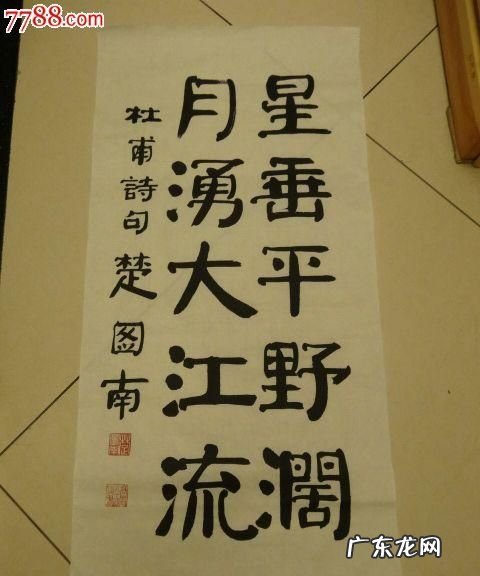 7788.com
星垂平野濶
月湧大江流
杜甫詩句 楚圖南
广东龙网